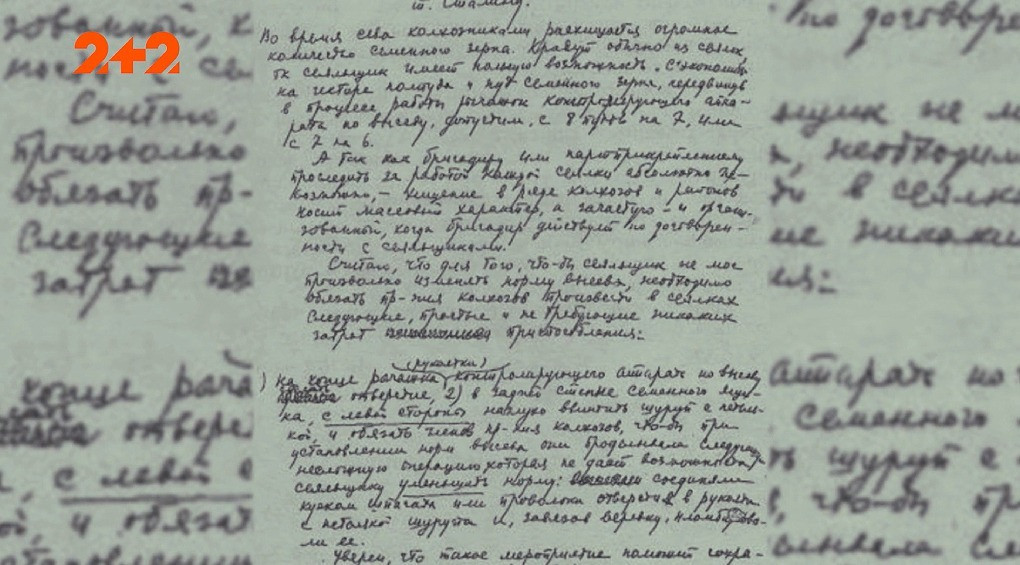 2+2
т. Сталину.
Во время сева колхозниками расхищается огромное
количество семенного зерна. Крадут обычно из сеялок,
тк сеяльщик имеет полную возможность. Сэкономить
на гекторе полпуда и пуд семенного зерна, передвинув
в процессе работы рычажок контролирующего аппа-
рата по высеву, допустим, с 8 пудов на 7, или
с 7 на 6.
А так как бригадиру или партприкрепленному
проследить за работой каждой сеялки абсолютно не-
возможно, – хищение в ряде колхозов и районов
носит массовый характер, а зачастую – и органи-
зованный, когда бригадир действует по договорен-
ности с сеяльщиками.
Считаю, что для того, что-бы сеяльщик не мог
произвольно изменять норму высева, необходимо
обязать пр-ния колхозов произвести в сеялках
следующие, простые и не требующие никаких
затрат приспособления:
(рукоятки)
) на конце рычажка контролирующего аппарат по высеву
отверстие, 2) в задней стенке семенного ящи-
ка, с левой стороны наглухо ввинтить шуруп с петель-
кой, и обязать членов пр-ния колхозов, что-бы при
установлении норм высева они проделывали следующ.
несложную операцию, которая не дает возможности
сеяльщику уменьшать норму: соединяли
куском шпагата или проволоки отверстия в рукоятк
с петелькой шурупа и, завязав веревку, пломбирова-
ли ее.
Уверен, что такое мероприятие поможет сохра-